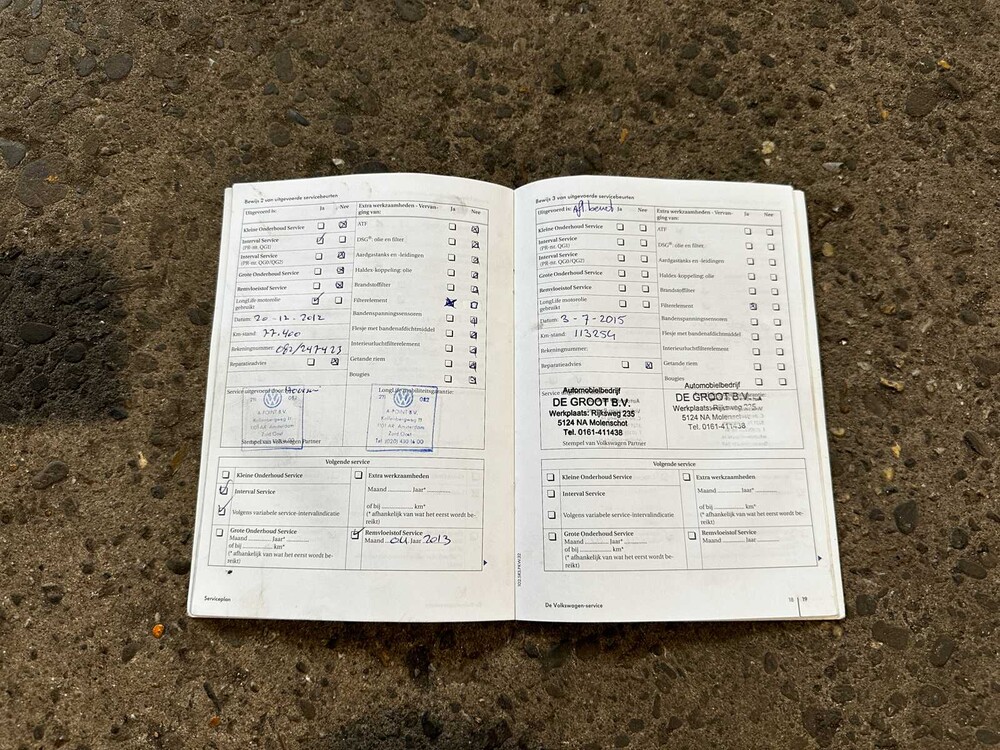 Bewijs 2 van uitgevoerde servicebeurten
Uitgevoerd is: Ja Nee
Kleine Onderhoud Service
Interval Service
(PR-nr. QG1)
Interval Service
(PR-nr. QG0/QG2)
Grote Onderhoud Service
Remvloeistof Service
LongLife motorolie
gebruikt
Datum: 20-12-2012
Km-stand: 77.400
Rekeningnummer: 082/247423
Reparatieadvies
Extra werkzaamheden - Vervan-
ging van: Ja Nee
ATF
DSG®: olie en filter
Aardgastanks en -leidingen
Haldex-koppeling: olie
Brandstoffilter
Filterelement
Bandenspanningssensoren
Flesje met bandenafdichtmiddel
Interieurluchtfilterelement
Getande riem
Bougies
Service uitgevoerd door:
LongLife mobiliteitsgarantie:
082
A POINT B.V.
Amsterdam
Zuid Oost
Stempel van Volkswagen Partner
082
A POINT B.V.
Amsterdam
Zuid Oost
Volgende service
Kleine Onderhoud Service
Interval Service
Volgens variabele service-intervalindicatie
Grote Onderhoud Service
Maand Jaar*
of bij km*
(* afhankelijk van wat het eerst wordt be-
reikt)
Extra werkzaamheden
Maand Jaar*
of bij km*
(* afhankelijk van wat het eerst wordt be-
reikt)
Remvloeistof Service
Maand 04 Jaar 2013
Serviceplan
Bewijs 3 van uitgevoerde servicebeurten
Uitgevoerd is: Afl. beurt Ja Nee
Kleine Onderhoud Service
Interval Service
(PR-nr. QG1)
Interval Service
(PR-nr. QG0/QG2)
Grote Onderhoud Service
Remvloeistof Service
LongLife motorolie
gebruikt
Datum: 3-7-2015
Km-stand: 113254
Rekeningnummer:
Reparatieadvies
Extra werkzaamheden - Vervan-
ging van: Ja Nee
ATF
DSG®: olie en filter
Aardgastanks en -leidingen
Haldex-koppeling: olie
Brandstoffilter
Filterelement
Bandenspanningssensoren
Flesje met bandenafdichtmiddel
Interieurluchtfilterelement
Getande riem
Bougies
Automobielbedrijf
DE GROOT B.V.
Werkplaats: Rijksweg 235
5124 NA Molenschot
Tel. 0161-411438
Stempel van Volkswagen Partner
Automobielbedrijf
DE GROOT B.V.
Werkplaats: Rijksweg 235
5124 NA Molenschot
Tel. 0161-411438
Volgende service
Kleine Onderhoud Service
Interval Service
Volgens variabele service-intervalindicatie
Grote Onderhoud Service
Maand Jaar*
of bij km*
(* afhankelijk van wat het eerst wordt be-
reikt)
Extra werkzaamheden
Maand Jaar*
of bij km*
(* afhankelijk van wat het eerst wordt be-
reikt)
Remvloeistof Service
Maand Jaar
De Volkswagen-service
18 19